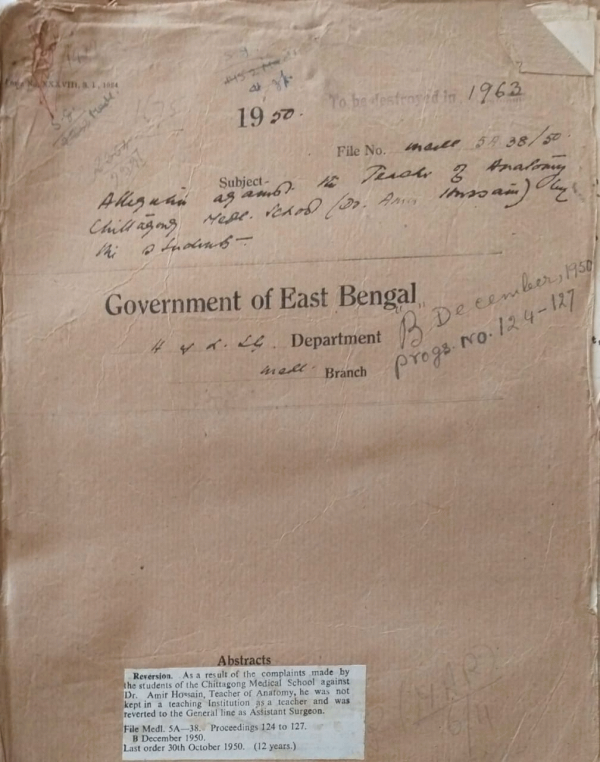 XXXVIII, B. I., 1884
1950.
To be destroyed in 1963
File No. Medl 5A 38/50.
Subject- Allegation against the Teacher of Anatomy
Chittagong Medl. School (Dr. Amir Hussain) by
the students—
Government of East Bengal
H & L. S. G. Department
Medl. Branch
"B" December, 1950
Progs. No. 124-127
Abstracts
Reversion. As a result of the complaints made by
the students of the Chittagong Medical School against
Dr. Amir Hossain, Teacher of Anatomy, he was not
kept in a teaching Institution as a teacher and was
reverted to the General line as Assistant Surgeon.
File Medl. 5A—38. Proceedings 124 to 127.
B December 1950.
Last order 30th October 1950. (12 years.)